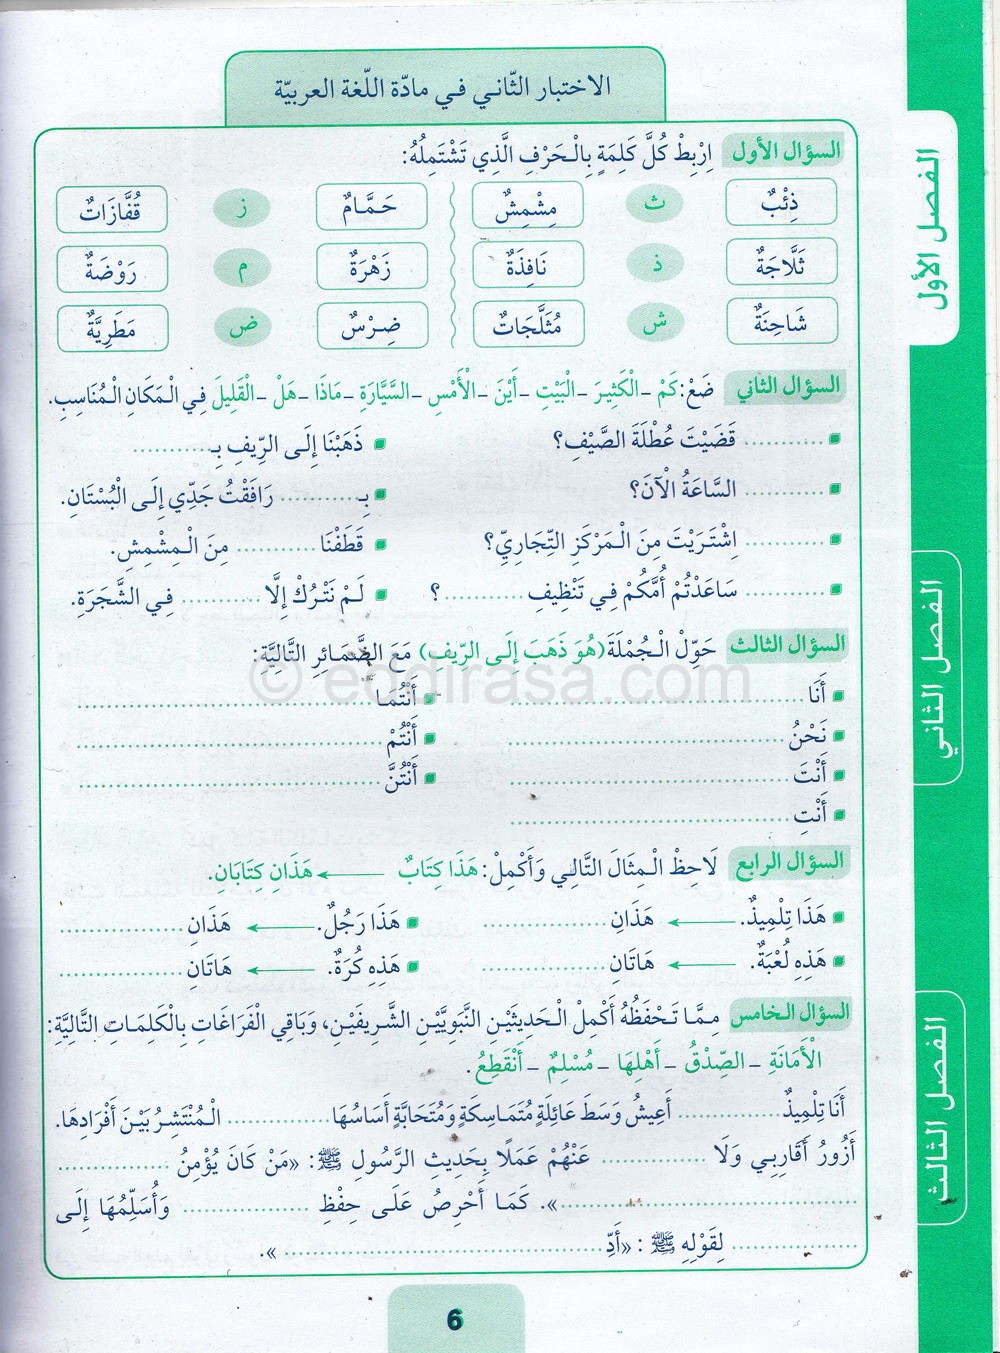 الاختبار الثّاني في مادّة اللّغة العربيّة
السؤال الأول اِرْبِطْ كُلَّ كَلِمَةٍ بِالْحَرْفِ الَّذِي تَشْتَمِلُهُ:
ذِئْبٌ ث مِشْمِشٌ حَمَّامٌ ز قُفَّازَاتٌ
ثَلَّاجَةٌ ذ نَافِذَةٌ زَهْرَةٌ م رَوْضَةٌ
شَاحِنَةٌ ش مُثَلَّجَاتٌ ضِرْسٌ ض مَطَرِيَّةٌ
السؤال الثاني ضَعْ: كَمْ - الْكَثِيرَ - الْبَيْتِ - أَيْنَ - الْأَمْسِ - السَّيَّارَةِ - مَاذَا - هَلْ - الْقَلِيلَ فِي الْمَكَانِ الْمُنَاسِبِ.
............ قَضَيْتَ عُطْلَةَ الصَّيْفِ؟ ذَهَبْنَا إِلَى الرِّيفِ بِـ............
............ السَّاعَةُ الْآنَ؟ بِـ............ رَافَقْتُ جَدِّي إِلَى الْبُسْتَانِ.
............ اِشْتَرَيْتَ مِنَ الْمَرْكَزِ التِّجَارِيِّ؟ قَطَفْنَا ............ مِنَ الْمِشْمِشِ.
............ سَاعَدْتُمْ أُمَّكُمْ فِي تَنْظِيفِ ............؟ لَمْ نَتْرُكْ إِلَّا ............ فِي الشَّجَرَةِ.
السؤال الثالث حَوِّلْ الْجُمْلَةَ (هُوَ ذَهَبَ إِلَى الرِّيفِ) مَعَ الضَّمَائِرِ التَّالِيَّةِ:
© eddirasa.com
أَنَا ............ أَنْتُمَا ............
نَحْنُ ............ أَنْتُمْ ............
أَنْتَ ............ أَنْتُنَّ ............
أَنْتِ ............
السؤال الرابع لَاحِظْ الْمِثَالَ التَّالِي وَأَكْمِلْ: هَذَا كِتَابٌ ← هَذَانِ كِتَابَانِ.
هَذَا تِلْمِيذٌ. ← هَذَانِ ............ هَذَا رَجُلٌ. ← هَذَانِ ............
هَذِهِ لُعْبَةٌ. ← هَاتَانِ ............ هَذِهِ كُرَةٌ. ← هَاتَانِ ............
السؤال الخامس مِمَّا تَحْفَظُهُ أَكْمِلْ الْحَدِيثَيْنِ النَّبَوِيَّيْنِ الشَّرِيفَيْنِ، وَبَاقِي الْفَرَاغَاتِ بِالْكَلِمَاتِ التَّالِيَّةِ:
الْأَمَانَةِ - الصِّدْقُ - أَهْلِهَا - مُسْلِمٌ - أَنْقَطِعُ.
أَنَا تِلْمِيذٌ ............ أَعِيشُ وَسَطَ عَائِلَةٍ مُتَمَاسِكَةٍ وَمُتَحَابَّةٍ أَسَاسُهَا ............ الْمُنْتَشِرُ بَيْنَ أَفْرَادِهَا.
أَزُورُ أَقَارِبِي وَلَا ............ عَنْهُمْ عَمَلًا بِحَدِيثِ الرَّسُولِ ﷺ: «مَنْ كَانَ يُؤْمِنُ ............
............». كَمَا أَحْرِصُ عَلَى حِفْظِ ............ وَأُسَلِّمُهَا إِلَى
............ لِقَوْلِهِ ﷺ: «أَدِّ ............».
6
الفصل الأول
الفصل الثاني
الفصل الثالث